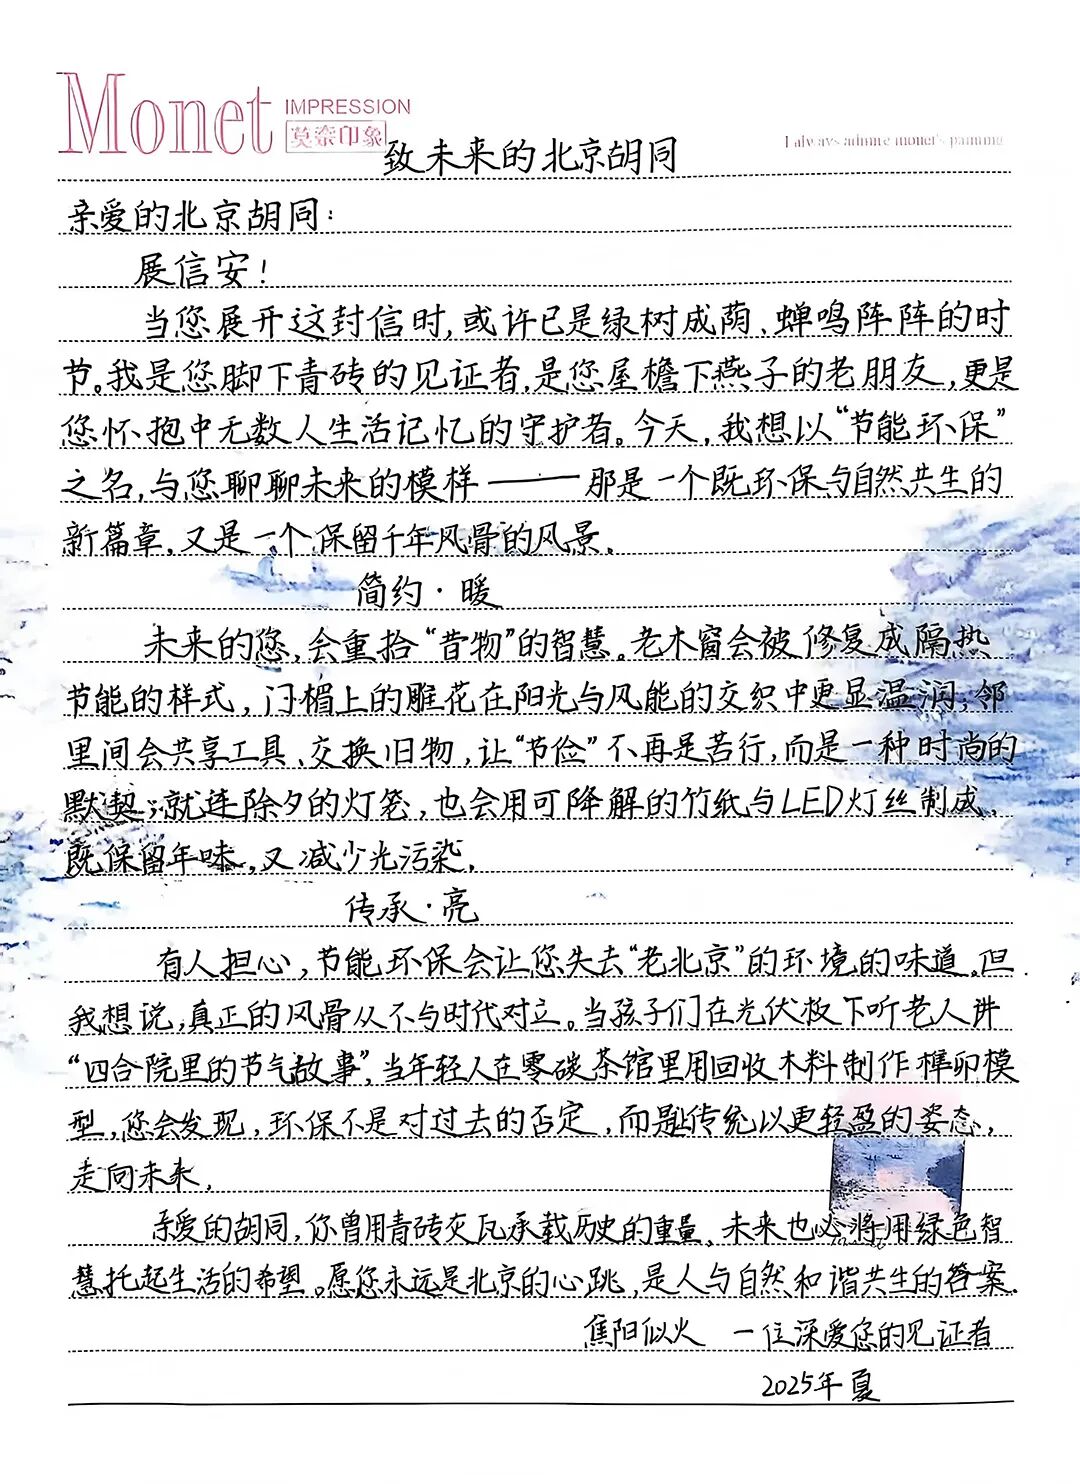 Monet IMPRESSION
莫奈印象
I always admire monet's painting
致未来的北京胡同
亲爱的北京胡同：
展信安！
当您展开这封信时，或许已是绿树成荫、蝉鸣阵阵的时
节。我是您脚下青砖的见证者，是您屋檐下燕子的老朋友，更是
您怀抱中无数人生活记忆的守护者。今天，我想以“节能环保”
之名，与您聊聊未来的模样——那是一个既环保与自然共生的
新篇章，又是一个保留千年风骨的风景。
简约·暖
未来的您，会重拾“昔物”的智慧。老木窗会被修复成隔热
节能的样式，门楣上的雕花在阳光与风能的交织中更显温润；邻
里间会共享工具、交换旧物，让“节俭”不再是苦行，而是一种时尚的
默契；就连除夕的灯笼，也会用可降解的竹纸与LED灯丝制成，
既保留年味，又减少光污染。
传承·亮
有人担心，节能环保会让您失去“老北京”的环境的味道。但
我想说，真正的风骨从不与时代对立。当孩子们在光伏板下听老人讲
“四合院里的节气故事”，当年轻人在零碳茶馆里用回收木料制作榫卯模
型，您会发现，环保不是对过去的否定，而是让传统以更轻盈的姿态，
走向未来。
亲爱的胡同，你曾用青砖灰瓦承载历史的重量，未来也必将用绿色智
慧托起生活的希望。愿您永远是北京的心跳，是人与自然和谐共生的答案。
焦阳似火 一位深爱您的见证者
2025年夏